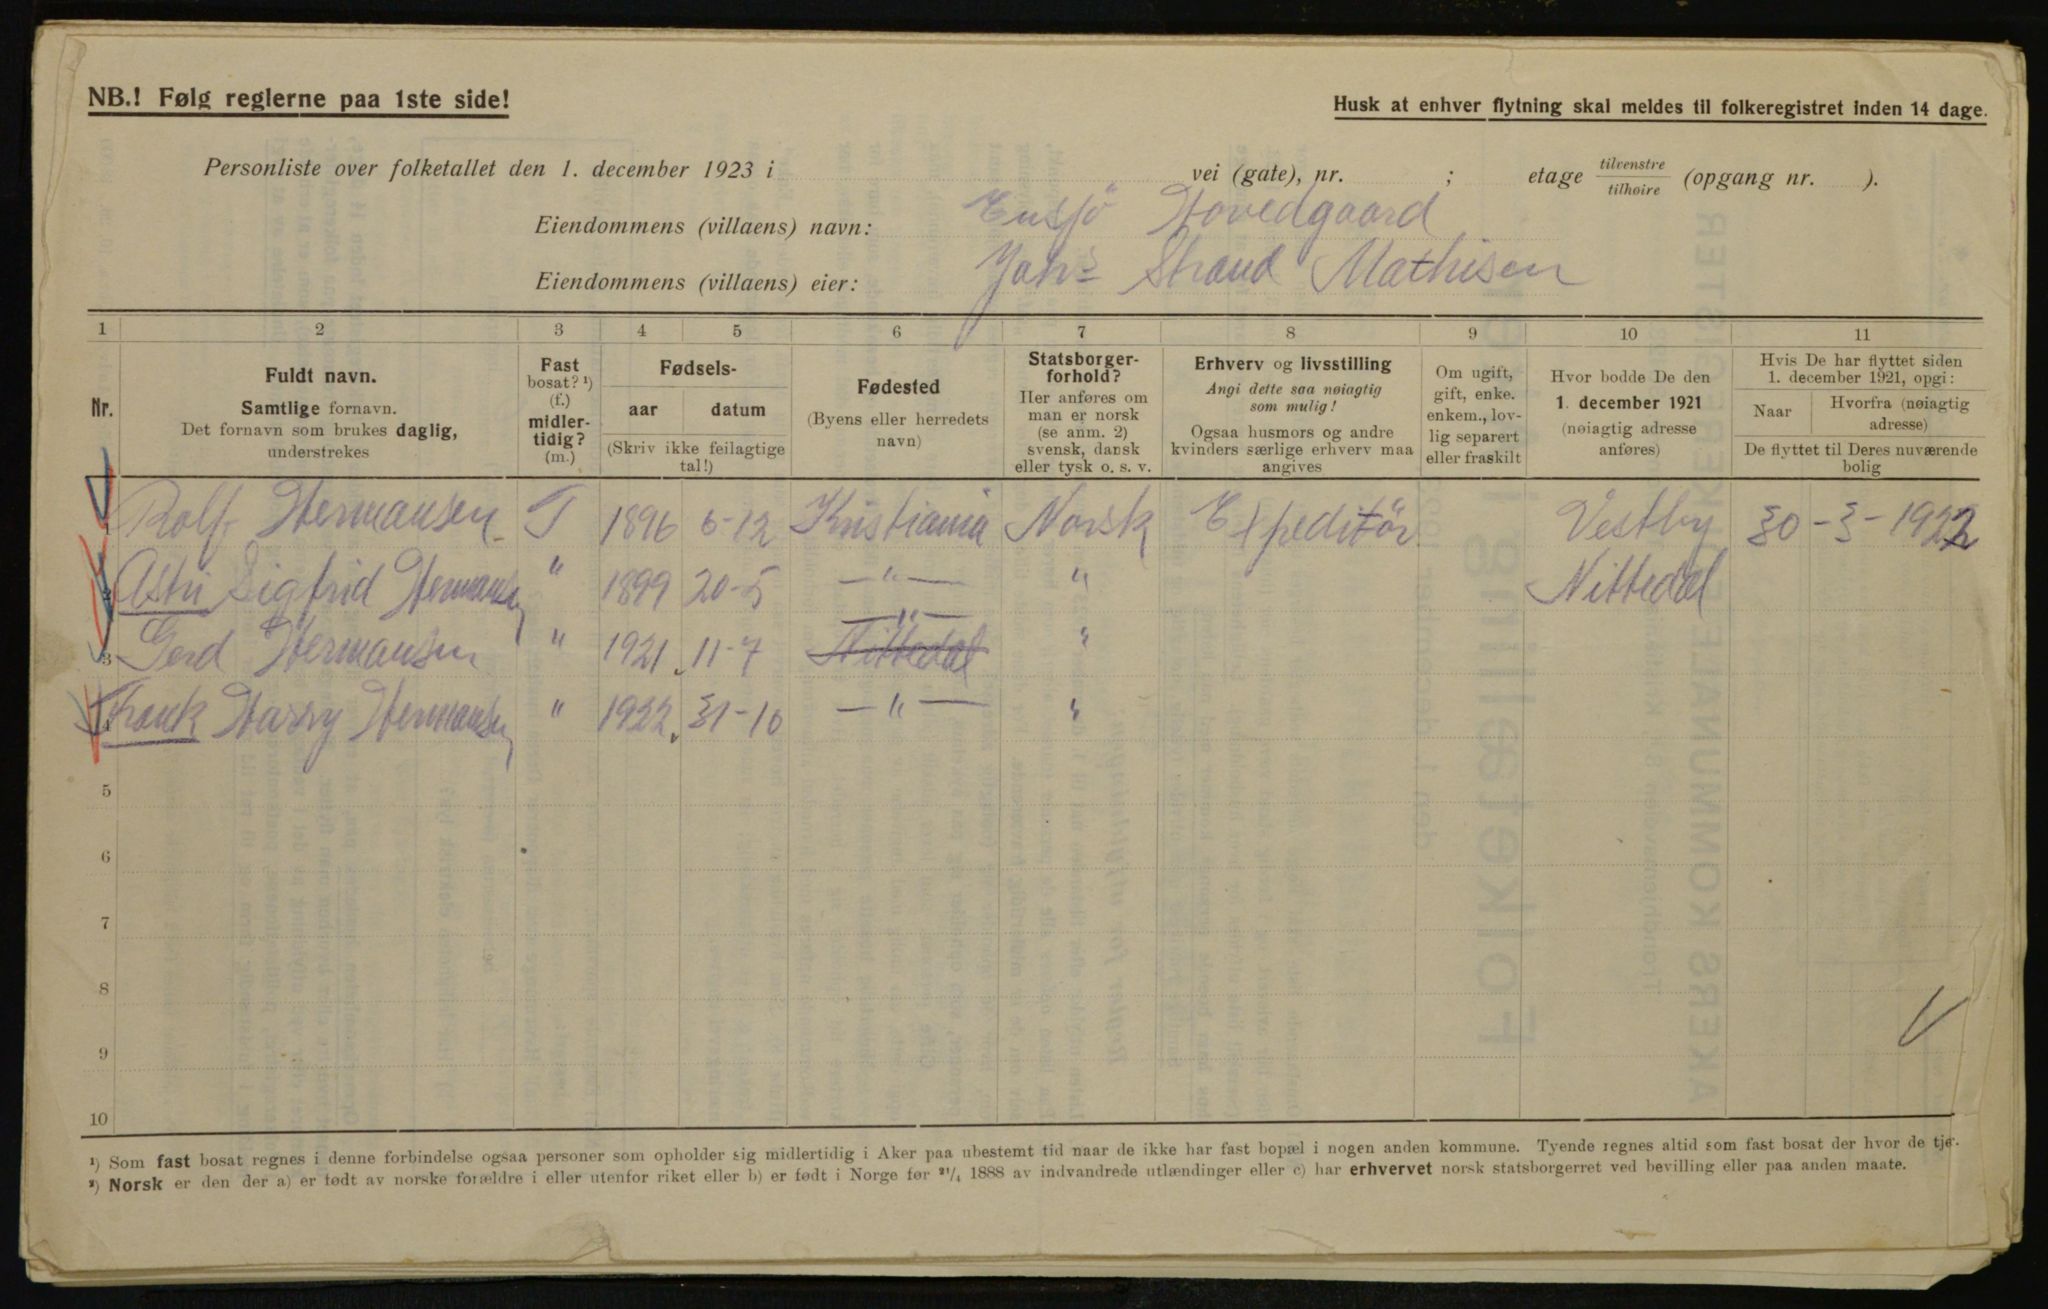 NB.! Følg reglerne paa 1ste side!
Husk at enhver flytning skal meldes til folkeregistret inden 14 dage.
Personliste over folketallet den 1. december 1923 i vei (gate), nr. ; etage tilvenstre tilhøire (opgang nr. ).
Eiendommens (villaens) navn: Ensjö Hovedgaard
Eiendommens (villaens) eier: Johs Strand Mathisen
1 2 3 4 5 6 7 8 9 10 11
Nr.
Fuldt navn.
Samtlige fornavn.
Det fornavn som brukes daglig,
understrekes
Fast
bosat? ¹)
(f.)
midler-
tidig?
(m.)
Fødsels-
aar datum
(Skriv ikke feilagtige
tal!)
Fødested
(Byens eller herredets
navn)
Statsborger-
forhold?
Her anføres om
man er norsk
(se anm. 2)
svensk, dansk
eller tysk o. s. v.
Erhverv og livsstilling
Angi dette saa nøiagtig
som mulig!
Ogsaa husmors og andre
kvinders særlige erhverv maa
angives
Om ugift,
gift, enke.
enkem., lov-
lig separert
eller fraskilt
Hvor bodde De den
1. december 1921
(nøiagtig adresse
anføres)
Hvis De har flyttet siden
1. december 1921, opgi:
Naar
Hvorfra (nøiagtig
adresse)
De flyttet til Deres nuværende
bolig
1 Rolf Hermansen F 1896 6-12 Kristiania Norsk Expeditör Vestby 30-3-1922
2 Astri Sigfrid Hermansen " 1899 20-5 —"— " Nittedal
—"—
3 Gerd Hermansen " 1921. 11-7 Nittedal "
4 Frank Harry Hermansen " 1922. 31-10 —"— "
5
6
7
8
9
10
¹) Som fast bosat regnes i denne forbindelse ogsaa personer som opholder sig midlertidig i Aker paa ubestemt tid naar de ikke har fast bopæl i nogen anden kommune. Tyende regnes altid som fast bosat der hvor de tjener.
²) Norsk er den der a) er født av norske forældre i eller utenfor riket eller b) er født i Norge før ²¹/₄ 1888 av indvandrede utlændinger eller c) har erhvervet norsk statsborgerret ved bevilling eller paa anden maate.